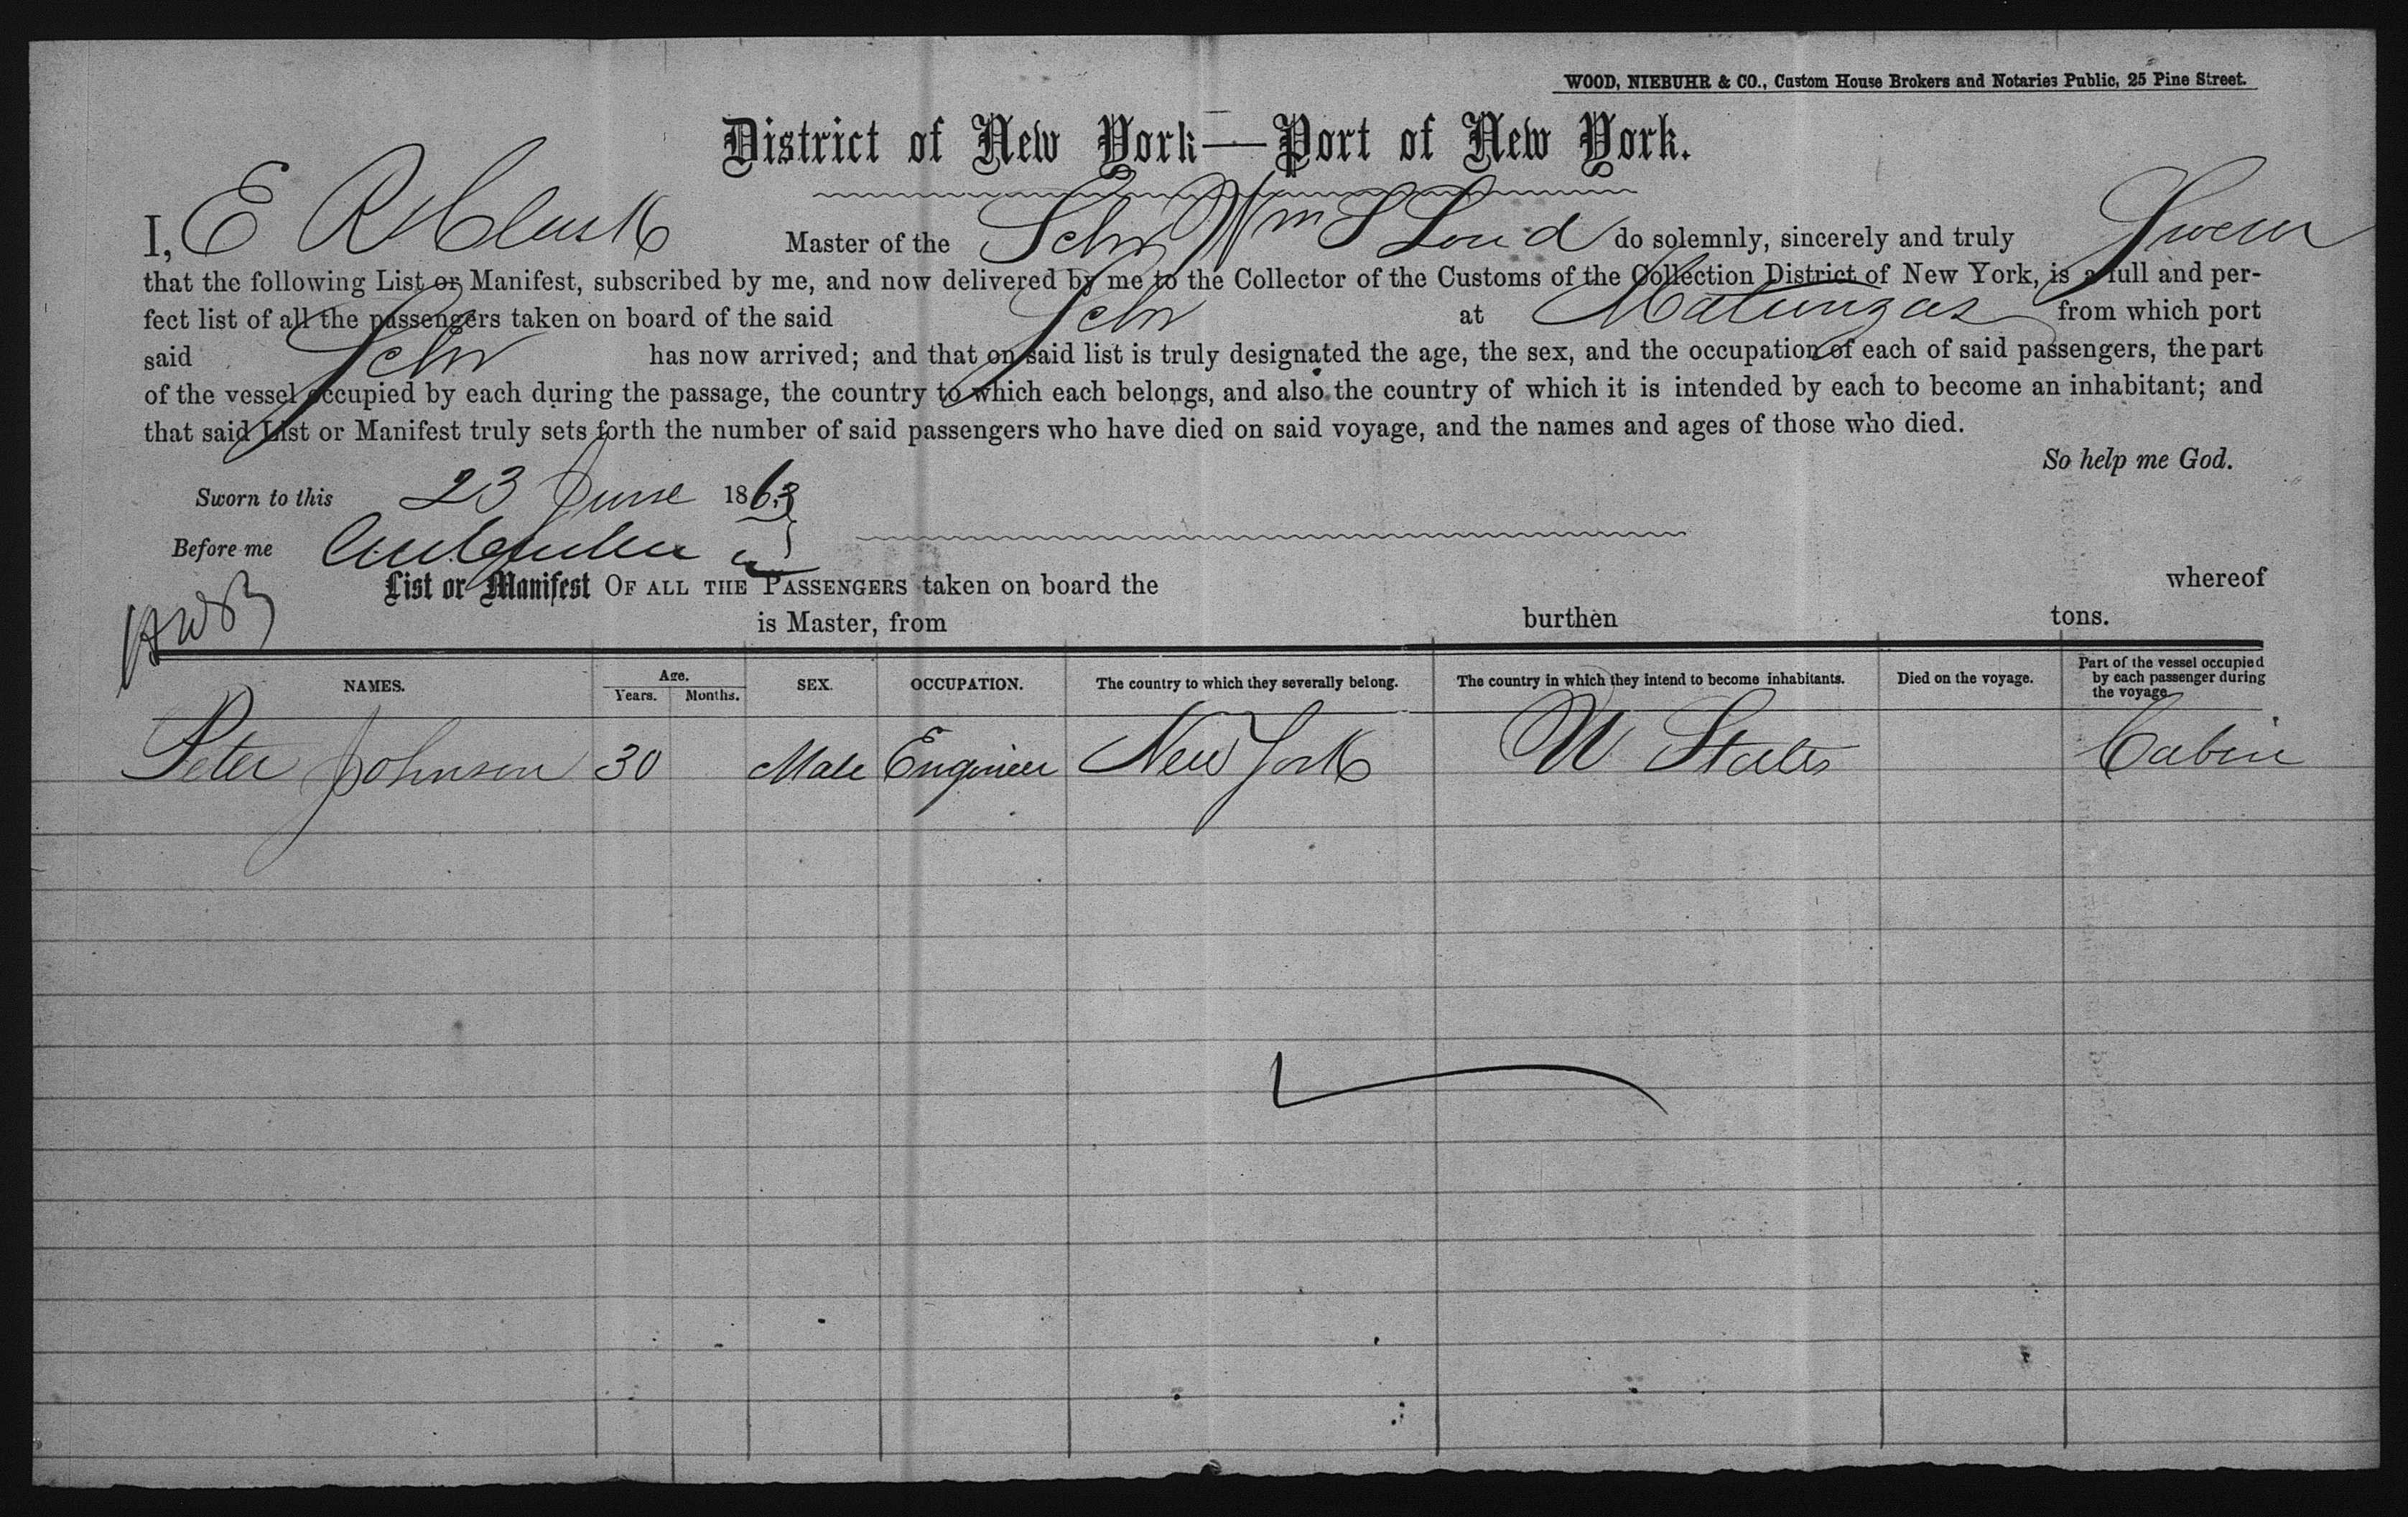 WOOD, NIEBUHR & CO., Custom House Brokers and Notaries Public, 25 Pine Street.
District of New York—Port of New York.
I, E R Master of the Schr Wm S Loud do solemnly, sincerely and truly Swear
that the following List or Manifest, subscribed by me, and now delivered by me to the Collector of the Customs of the Collection District of New York, is a full and per-
fect list of all the passengers taken on board of the said Schr at Matanzas from which port
said Schr has now arrived; and that on said list is truly designated the age, the sex, and the occupation of each of said passengers, the part
of the vessel occupied by each during the passage, the country to which each belongs, and also the country of which it is intended by each to become an inhabitant; and
that said List or Manifest truly sets forth the number of said passengers who have died on said voyage, and the names and ages of those who died.
So help me God.
Sworn to this 23 June 1863
Before me
List or Manifest OF ALL THE PASSENGERS taken on board the whereof
is Master, from burthen tons.
NAMES. Age. Years. Months. SEX. OCCUPATION. The country to which they severally belong. The country in which they intend to become inhabitants. Died on the voyage. Part of the vessel occupied by each passenger during the voyage
Peter Johnson 30 Male Engineer New York U States Cabin